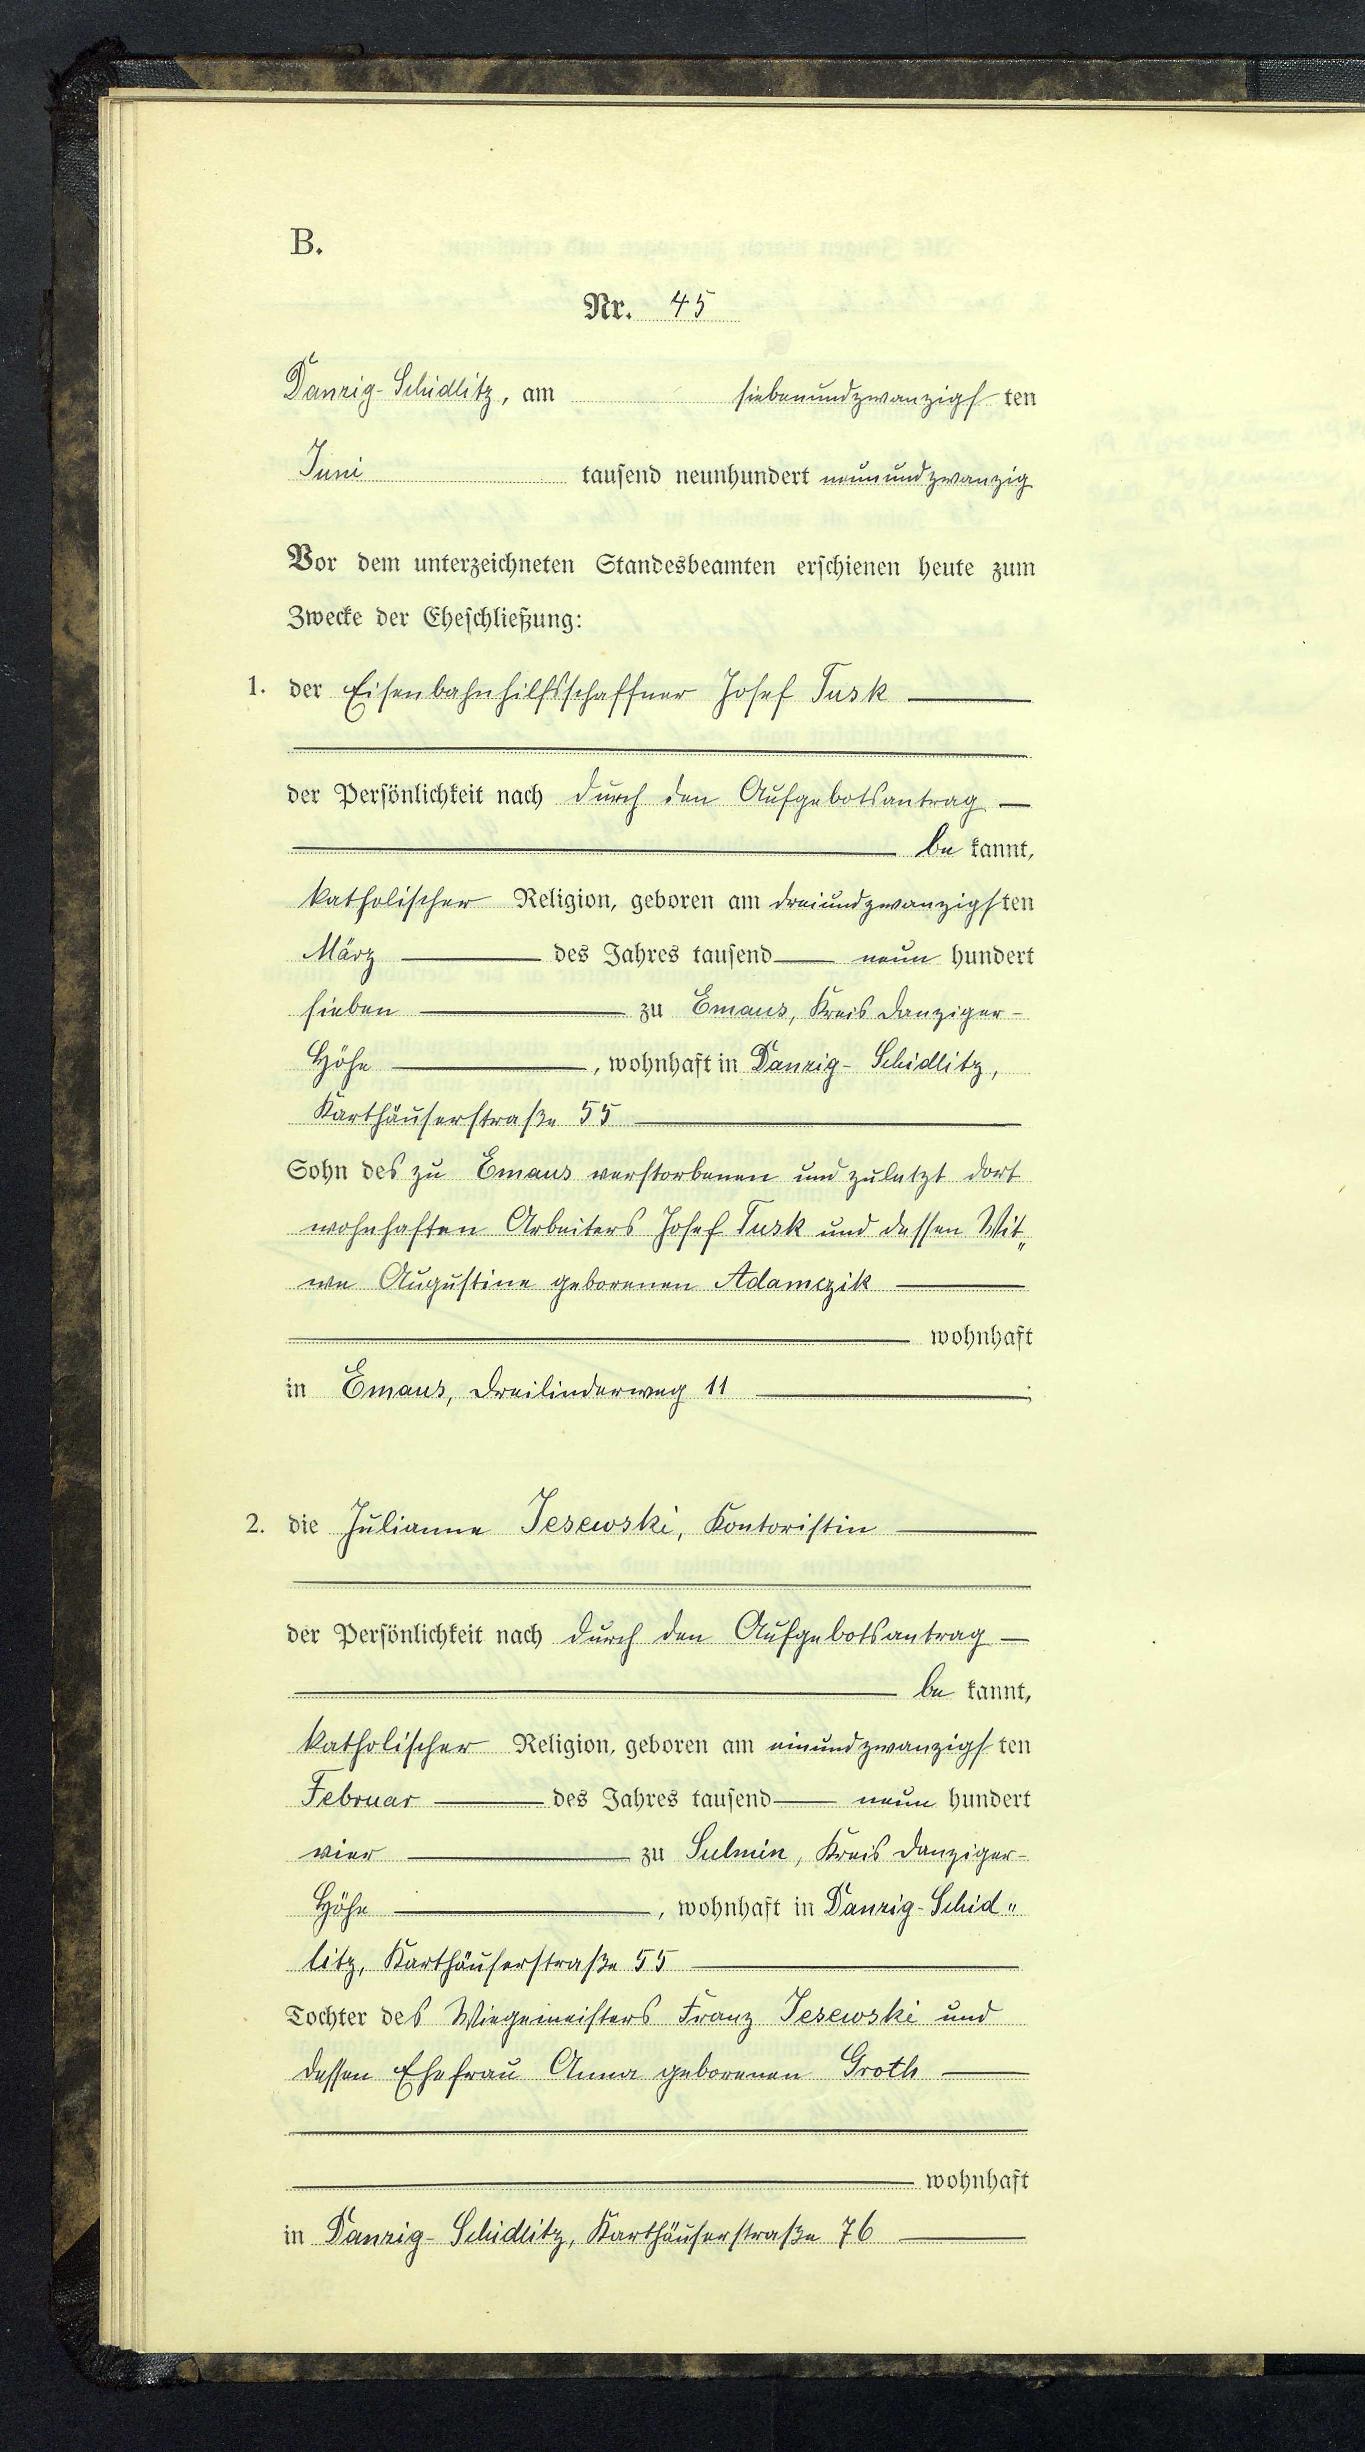 B.
Nr. 45
Danzig-Schidlitz, am siebenundzwanzigsten
Juni tausend neunhundert neunundzwanzig
Vor dem unterzeichneten Standesbeamten erschienen heute zum
Zwecke der Eheschließung:
1. der Eisenbahnhilfsschaffner Josef Tusk
der Persönlichkeit nach durch den Aufgebotsantrag
be kannt,
katholischer Religion, geboren am dreiundzwanzigsten
März des Jahres tausend neun hundert
sieben zu Emaus, Kreis Danziger-
Höhe, wohnhaft in Danzig-Schidlitz,
Karthäuserstraße 55
Sohn des zu Emaus verstorbenen und zuletzt dort
wohnhaften Arbeiters Josef Tusk und dessen Wit„
we Augustine geborenen Adamczik
wohnhaft
in Emaus, Dreilinderweg 11;
2. die Julianna Jesewski, Kontoristin
der Persönlichkeit nach durch den Aufgebotsantrag
be kannt,
katholischer Religion, geboren am einundzwanzigsten
Februar des Jahres tausend neun hundert
vier zu Sulmin, Kreis Danziger-
Höhe, wohnhaft in Danzig-Schid„
litz, Karthäuserstraße 55
Tochter des Wiegemeisters Franz Jesewski und
dessen Ehefrau Anna geborenen Groth
wohnhaft
in Danzig-Schidlitz, Karthäuserstraße 76